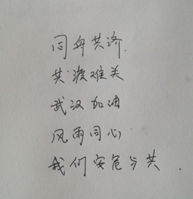 同舟共济
共渡难关
武汉加油
风雨同心
我们安危与共